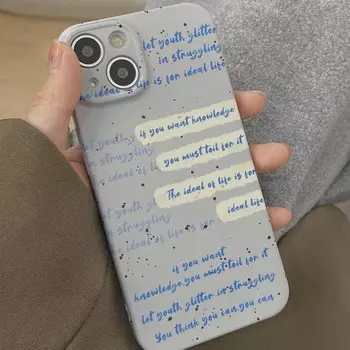 let youth glitter
in struggling
The ideal of life is for ideal life
if you want knowledge
let youth glitter
you must toil for it
in struggling
The ideal of life is for
The ideal of life is for
ideal life
let youth glitter
in struggling
The ideal of life is for
if you want
knowledge.you must toil for it
let youth glitter in struggling
You think you can,you can